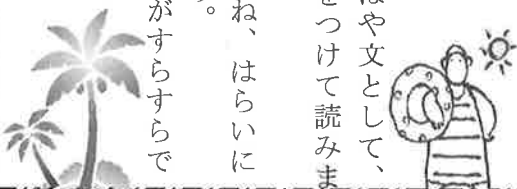 ばや文として、
をつけて読みま
ね、はらいに
す。
がすらすらで